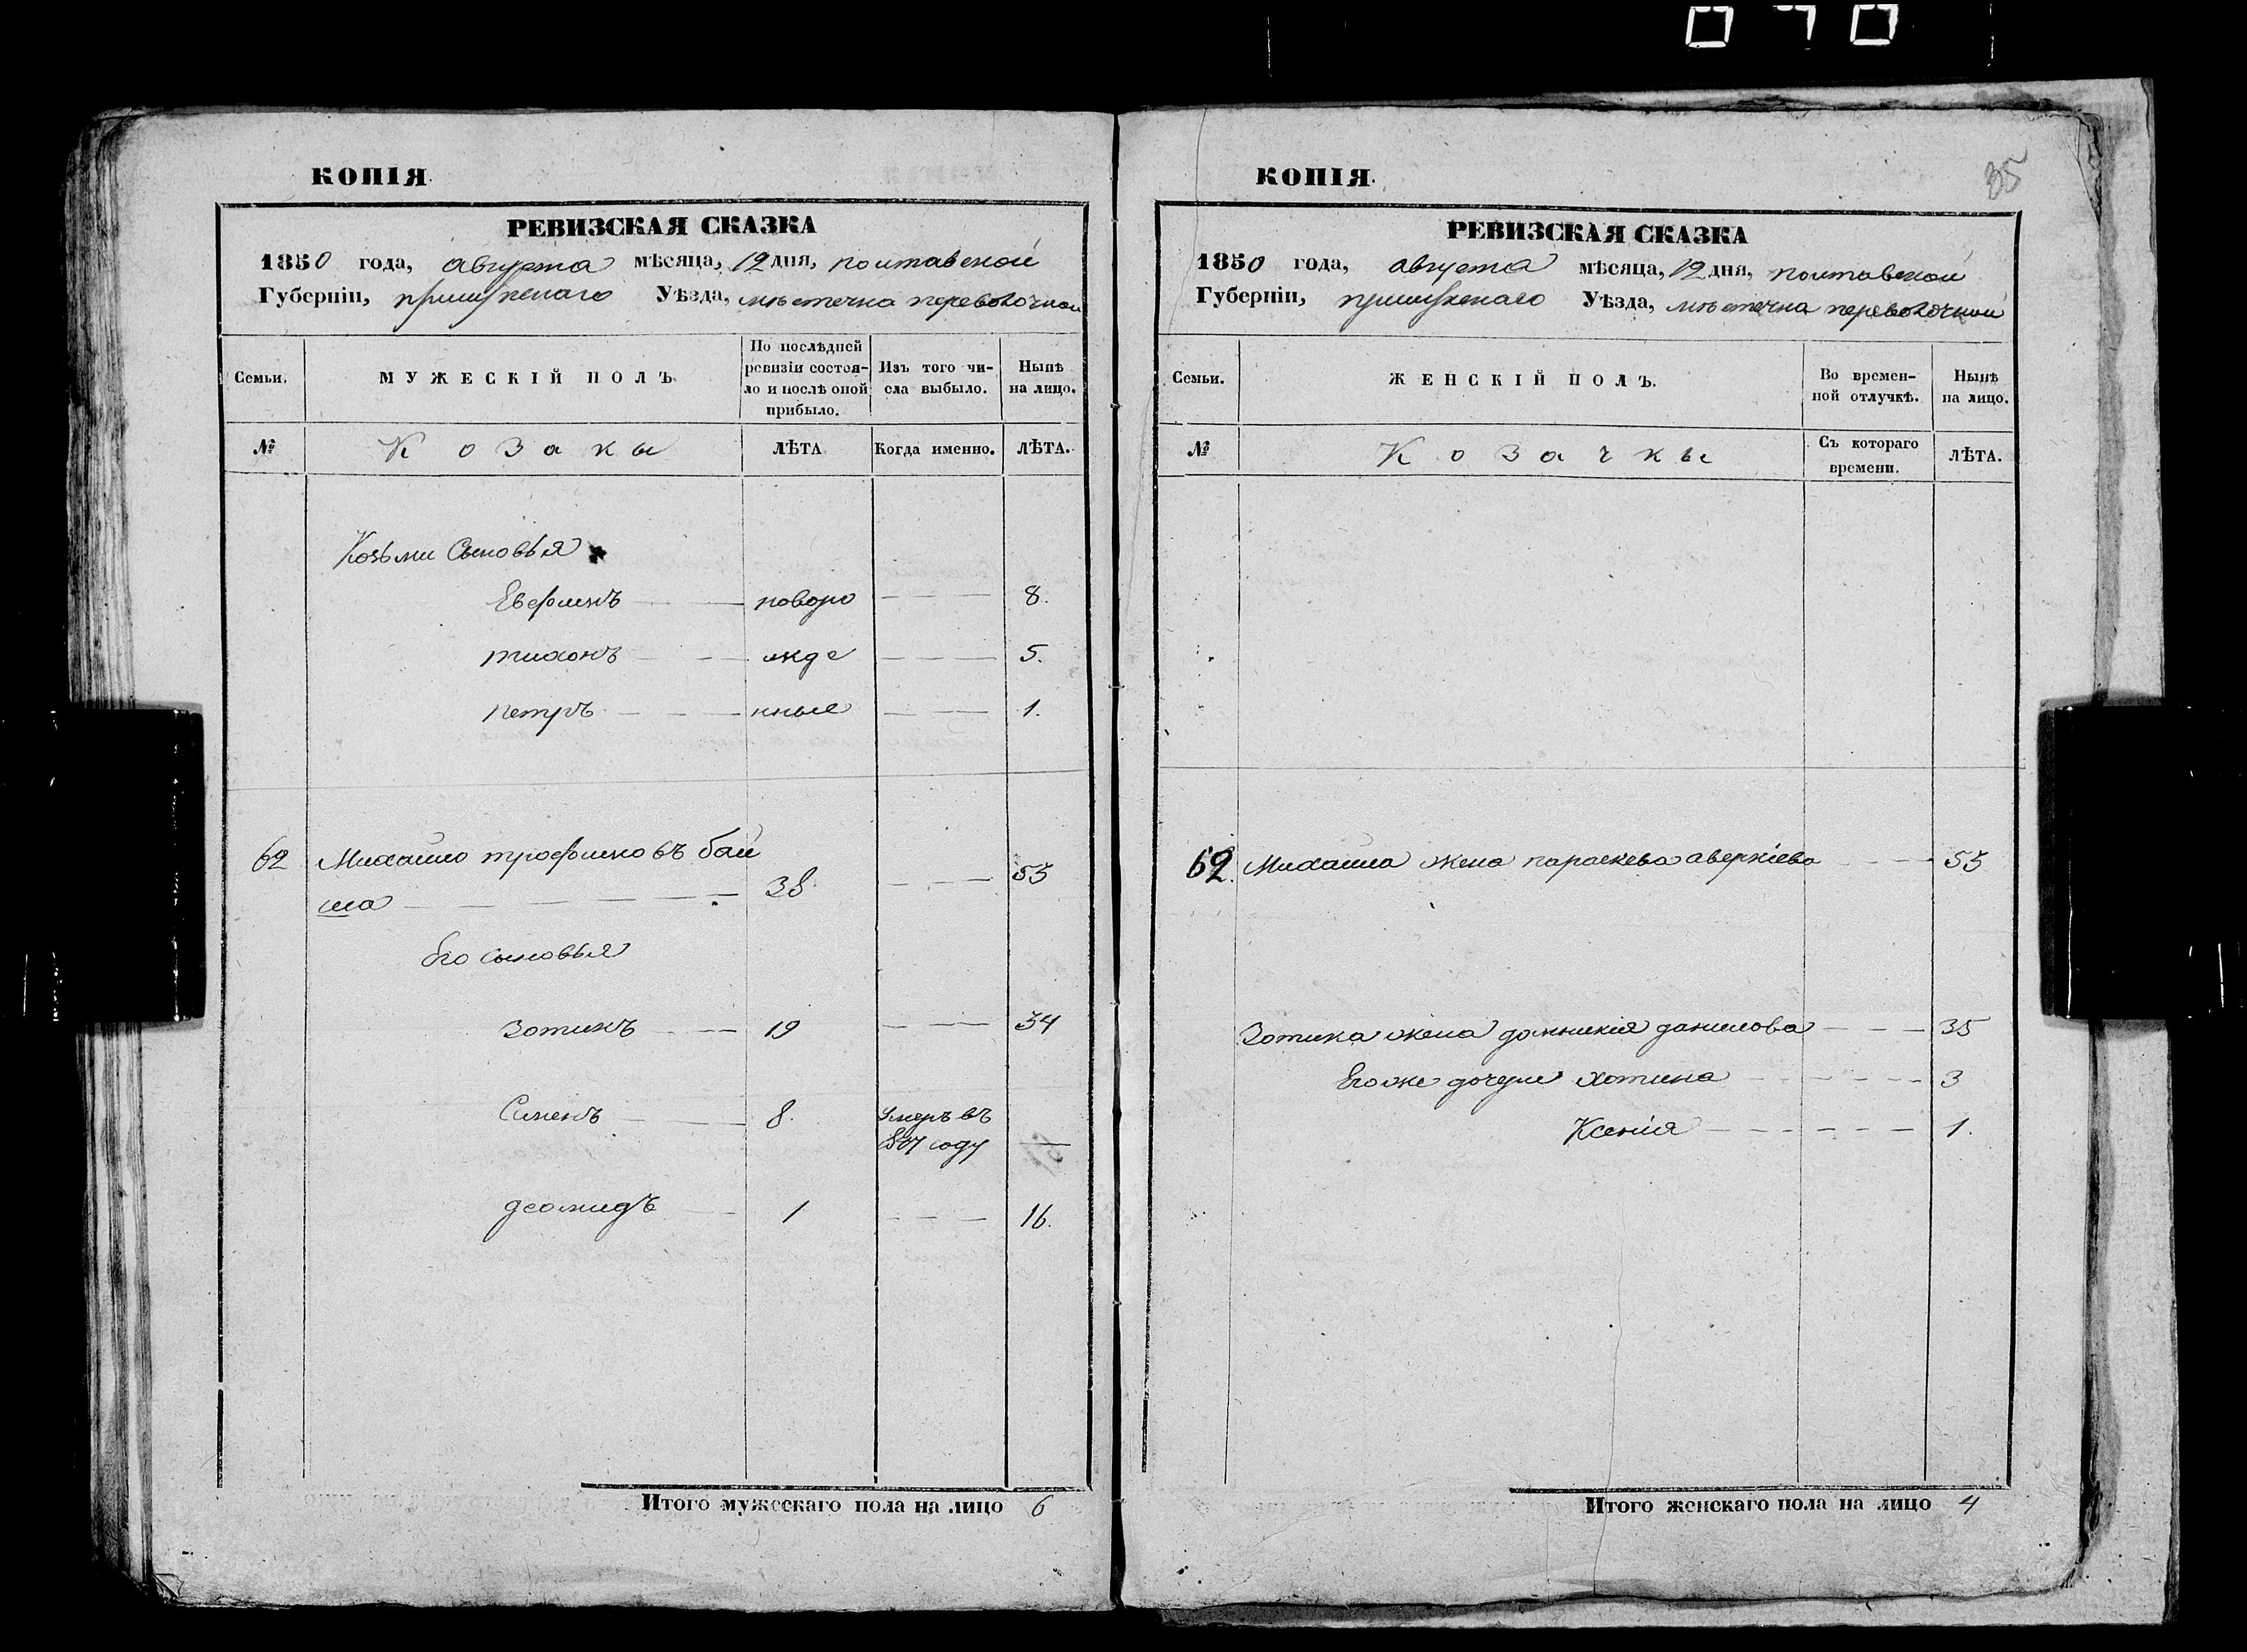 КОПІЯ.
РЕВИЗСКАЯ СКАЗКА
1850 года, августа мѣсяца, 12 дня, полтавской
Губерніи, прилуцкаго Уѣзда, мѣстечка переволочной
Семьи. МУЖЕСКІЙ ПОЛЪ. По послѣдней ревизіи состояло и послѣ оной прибыло. Изъ того числа выбыло. Нынѣ на лицо.
№ Козаки ЛѢТА Когда именно. ЛѢТА.
Козьми Сыновья
Евфимъ новоро 8.
тихонъ жде 5.
петръ нные 1.
62 Михайло трофимовъ бай
ша 38 53
Его сыновья
Зотикъ 19 34
Сименъ 8. Умеръ въ
году
деомидъ 1 16.
Итого мужескаго пола на лицо 6
35
КОПІЯ.
РЕВИЗСКАЯ СКАЗКА
1850 года, августа мѣсяца, 12 дня, полтавской
Губерніи, прилуцкаго Уѣзда, мѣстечка переволочной
Семьи. ЖЕНСКІЙ ПОЛЪ. Во временной отлучкѣ. Нынѣ на лицо.
№ Козачки Съ котораго времени. ЛѢТА.
62. Михайла жена параскева аверкіева 53
Зотика жена домникія данилова 35
Егоже дочери хотина 3
Ксенія 1.
Итого женскаго пола на лицо 4